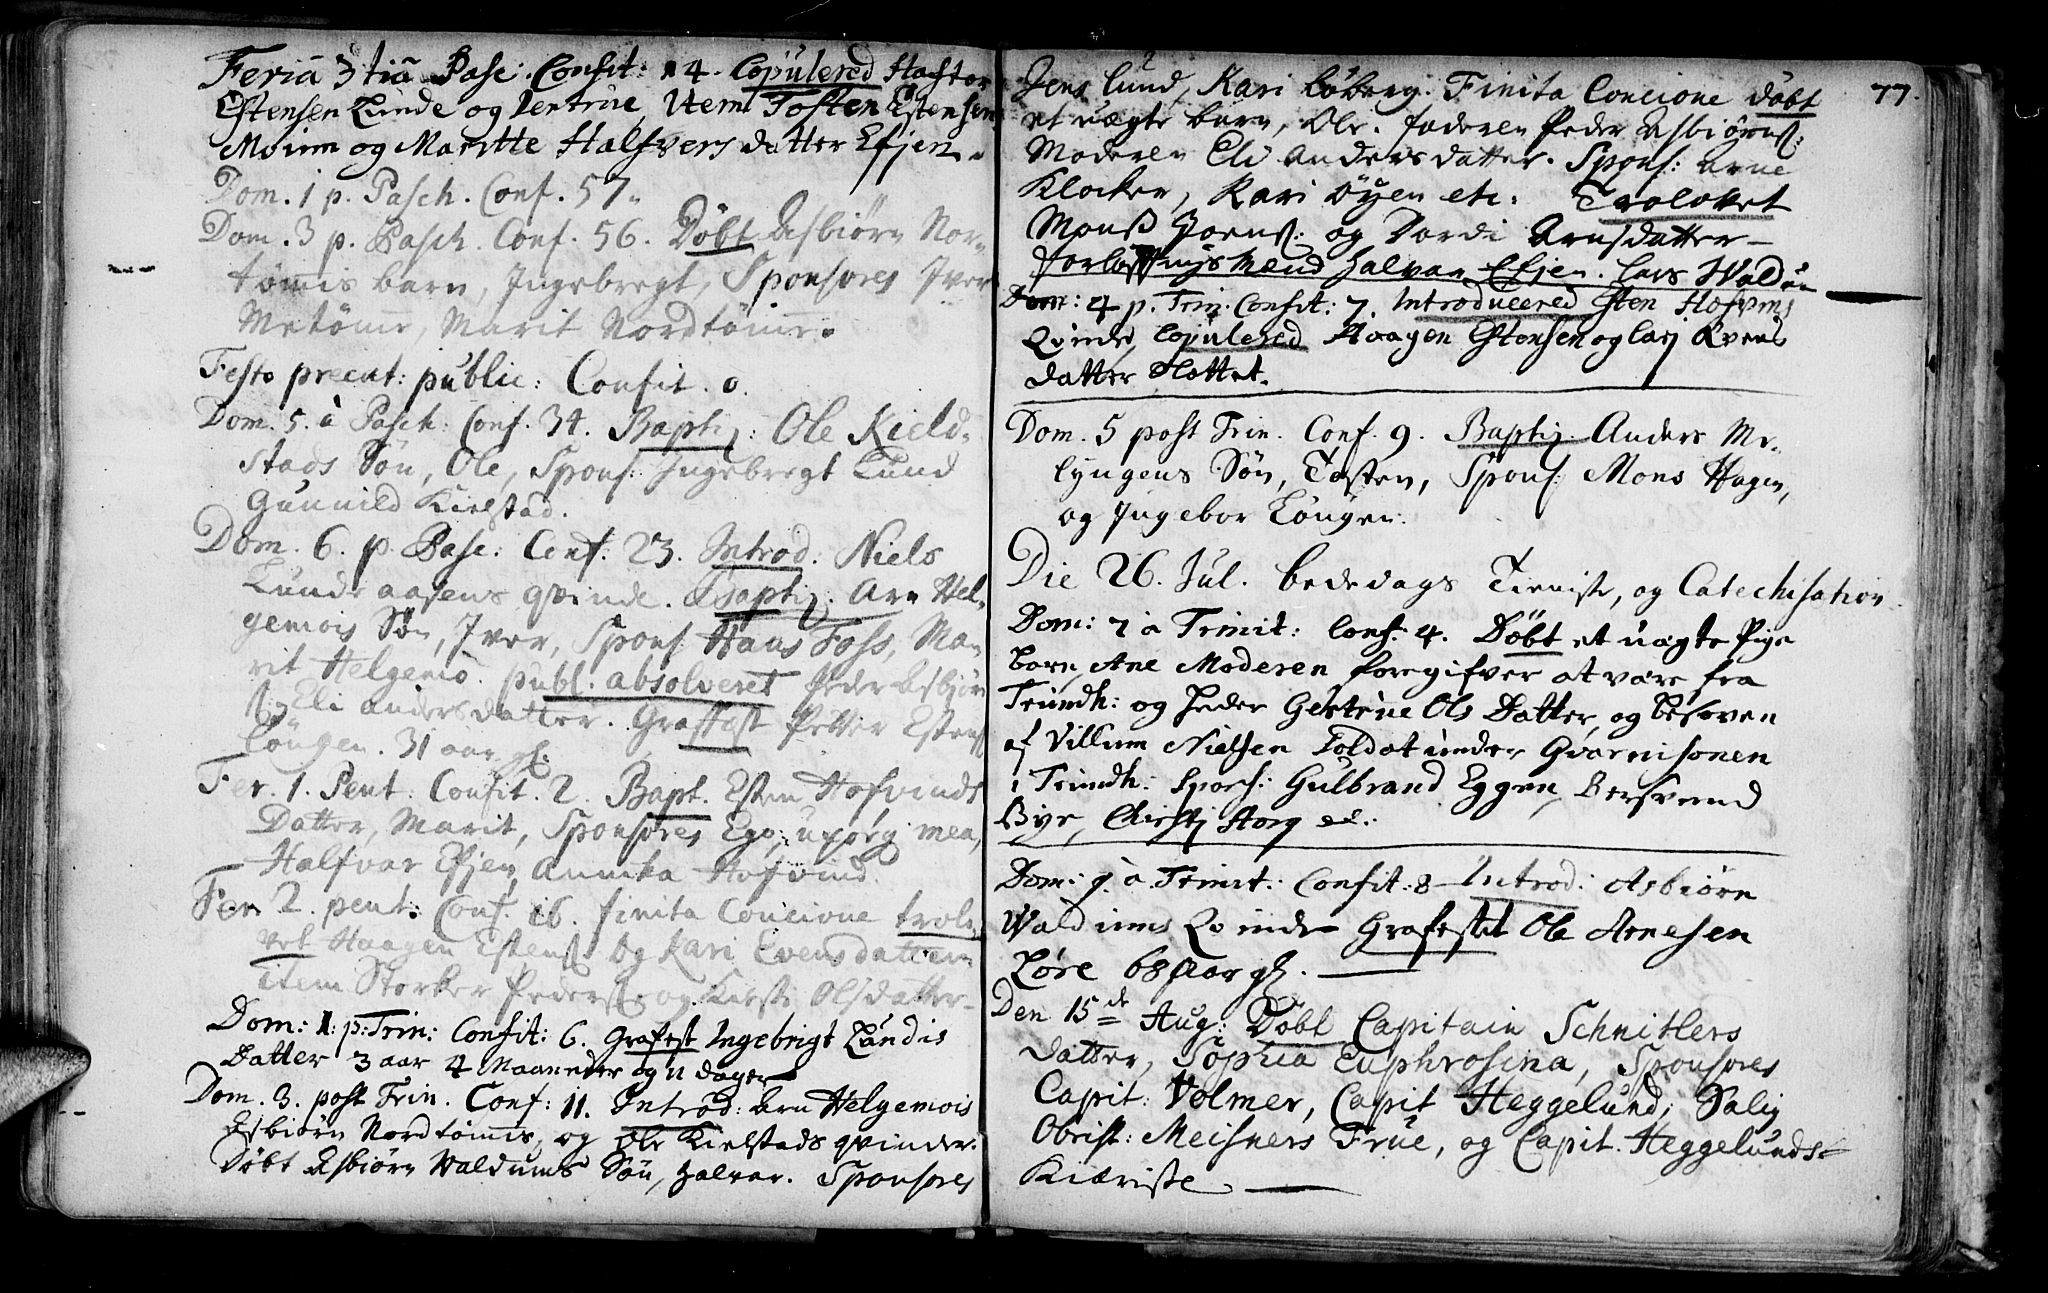 Feriâ 3tiâ Pasc: Confit: 14. Copulered Haftor
Estensen Lunde og Jertrue, Item Tosten Estensen
Moum og Maritte Halfversdatter Efjen.
Dom. 1 p. Pasch. Conf. 57.
Dom. 3 p. Pasch. Conf. 56. Döbt Esbiörn Nor-
tömmis barn, Ingebregt, Sponsores Iver
Metömme, Marit Nordtömme.
Festo precat: public: Confit. 0.
Dom. 5. à Pasch: Conf. 34. Baptiz: Ole Kield-
stads Sön, Ole, Spons: Ingebregt Lund
Gunnild Kielstad.
Dom. 6. p. Pasc: Conf. 23. Introd: Niels
Lundeaasens qvinde. Baptiz. Arn Hel-
gemois Sön, Iver, Spons. Hans Foss, Ma-
rit Helgemo. publ. absolveret Peder Esbjörn
s: Eli Andersdatter. Graffest Petter Estens:
Löngen. 31 aar gl.
Fer. 1. Pent. Confit. 2. Bapt. Esten Hofvinds
Datter, Marit, Sponsores Ego, uxorq; mea,
Halfvar Efjen, Annika Hofvind.
Fer. 2. pent: Conf. 16. finita Concione trolo-
vet Haagen Estens: og Kari Evensdatter
item Storker Peders: og Kirsti Olsdatter-
Dom: 1: p: Trin: Confit: 6. Grafest Ingebrigt Lundis
Datter 3 aar 4 Maaneder og 11 dager
Dom. 3. post Trin. Conf: 11. Introd: Arn Helgemois
Esbiörn Nordtömmis, og Ole Kielstads qvinder.
Döbt Esbiörn Waldums Sön, Halvar. Sponsores
77.
Jens Lund, Kari Löberg. Finita Concione döbt
et uægte barn, Ole. faderen Peder Asbiörns:
Moderen Eli Andersdatter. Spons: Arne
Klocker, Kari Öyen etc: Trolovet
Monss Joens: og Dordi Arnsdatter—
forlofningsmænd Halvar Efjen. Lars Waldum
Dom: 4 p. Trin. Confit: 7. Introducered Esten Hofvins
Qvinde, Copulered Haagen Estensen og Kari Evens
datter Slettet.
Dom. 5 post Trin. Conf. 9. Baptiz Anders Me-
lyngens Sön, Tosten, Spons: Mons Hagen,
og Ingebor Löngen.
Die 26. Jul. bededags Tieniste, og Catechisation.
Dom: 7 a Trinit: Conf: 4. Döbt et uægte Pige
barn, Ane Moderen foregifver at være fra
Trundh: og heder Gertrue Ols Datter, og besoven
af Villum Nielsen Soldat under Gvarnisonen
i Trundh: Spons: Gulbrand Eggen, Bersvend
Bye, Kirsti Horg etc.
Dom: 9. a. Trinit: Confit: 8 Introd: Asbiörn
Waldums Qvinde Grafestet Ole Arnesen
Löre 68 Aar gl.
Den 15de Aug: Döbt Capitain Schnitlers
datter, Sophia Euphrosina, Sponsores
Capit: Volmer, Capit Heggelund, Salig
Obrist: Meisners Frue, og Capit. Heggelunds
Kiæriste